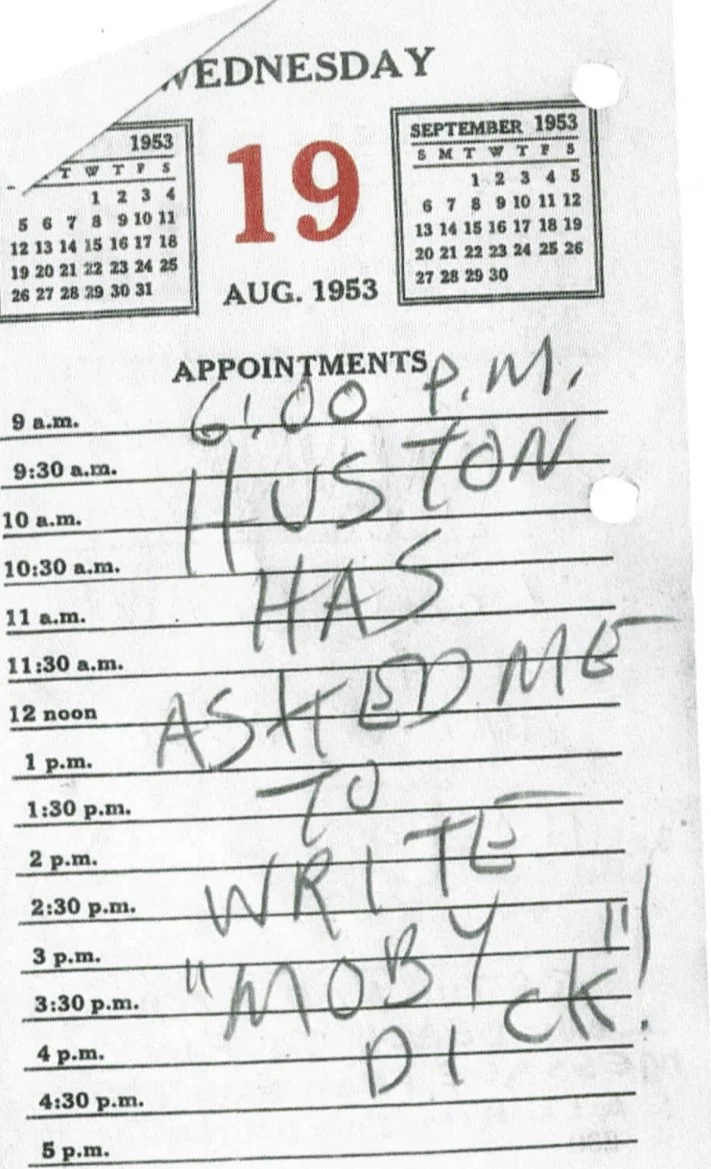 WEDNESDAY
1953
T W T F S
1 2 3 4
5 6 7 8 9 10 11
12 13 14 15 16 17 18
19 20 21 22 23 24 25
26 27 28 29 30 31
19
AUG. 1953
SEPTEMBER 1953
S M T W T F S
1 2 3 4 5
6 7 8 9 10 11 12
13 14 15 16 17 18 19
20 21 22 23 24 25 26
27 28 29 30
APPOINTMENTS
6:00 P.M.
9 a.m.
HUSTON
9:30 a.m.
10 a.m.
HAS
10:30 a.m.
11 a.m.
ASKED ME
11:30 a.m.
12 noon
1 p.m.
TO
1:30 p.m.
WRITE
2 p.m.
2:30 p.m.
"MOBY
3 p.m.
3:30 p.m.
DICK"!
4 p.m.
4:30 p.m.
5 p.m.